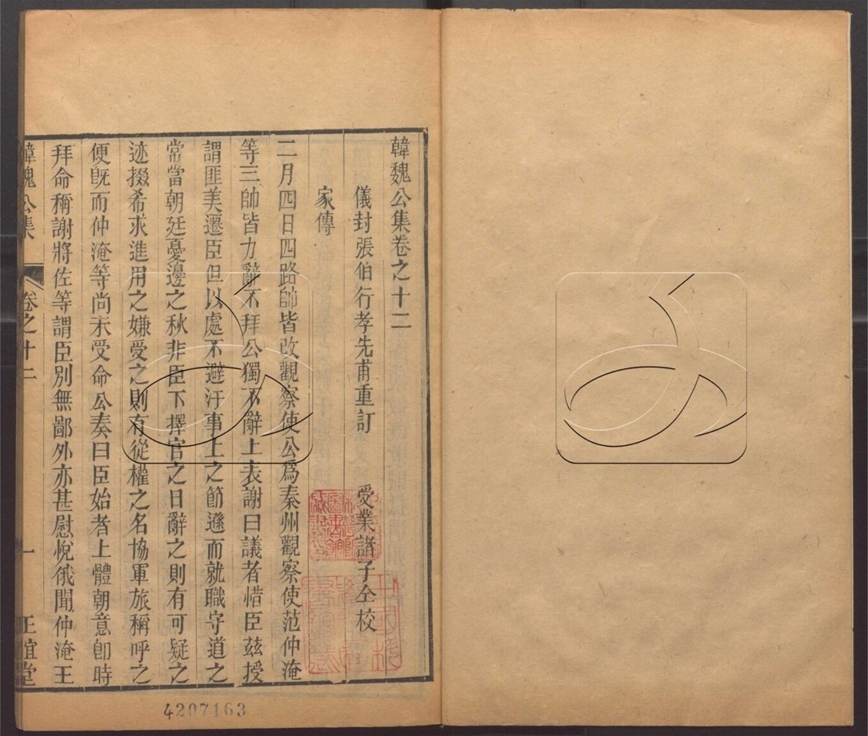 韓魏公集卷之十二
儀封張伯行孝先甫重訂 受業諸子仝校
家傳
二月四日四路帥皆改觀察使公爲秦州觀察使范仲淹
等三帥皆力辭不拜公獨不辭上表謝曰議者惜臣茲授
謂匪美遷臣但以處不避汙事上之節遜而就職守道之
常當朝廷憂邊之秋非臣下擇官之日辭之則有可疑之
迹掇希求進用之嫌受之則有從權之名協軍旅稱呼之
便旣而仲淹等尚未受命公奏曰臣始者上體朝意卽時
拜命稱謝將佐等謂臣別無鄙外亦甚慰悅俄聞仲淹王
韓魏公集 卷之十二 一 正誼堂
4207163